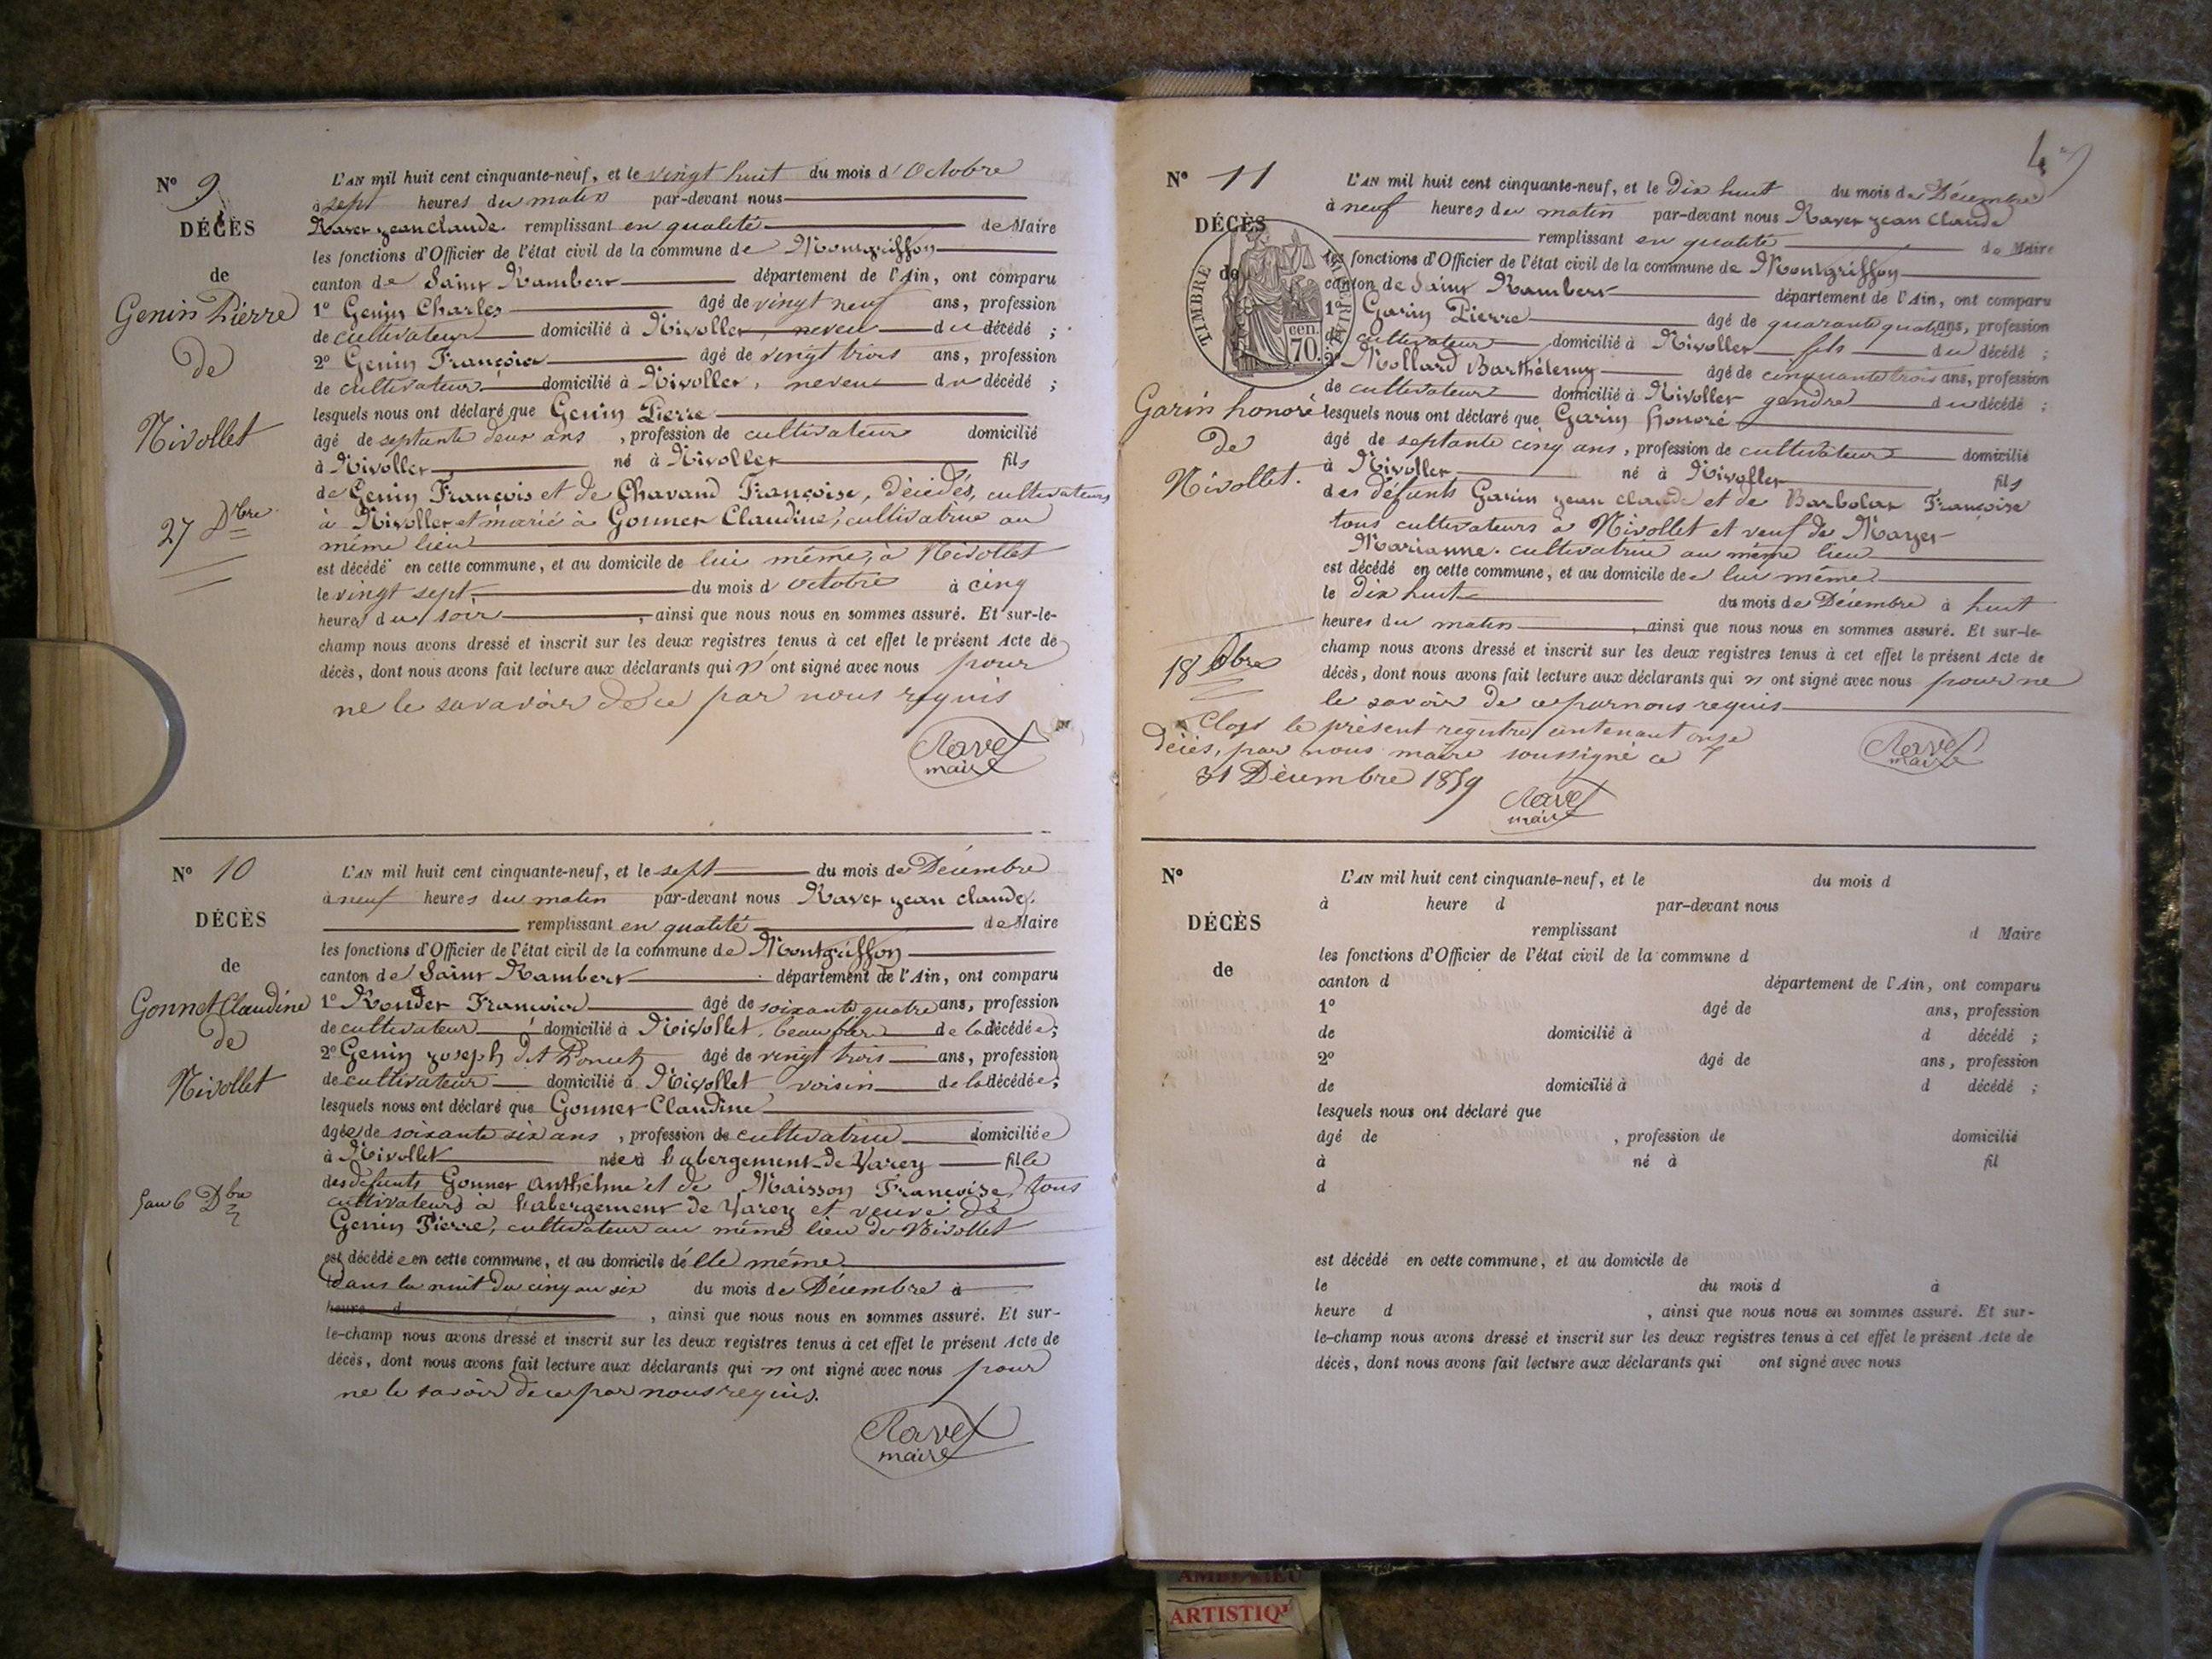 N° 9
DÉCÈS
de
Genin Pierre
de
Nivollet
27 Dbre
L'AN mil huit cent cinquante-neuf, et le vingt huit du mois d'Octobre
à sept heures du matin par-devant nous
Ravet jean claude remplissant en qualité de Maire
les fonctions d'Officier de l'état civil de la commune de Montgriffon
canton de Saint Rambert département de l'Ain, ont comparu
1° Genin Charles âgé de vingt neuf ans, profession
de cultivateur domicilié à Nivollet, neveu du décédé ;
2° Genin François âgé de vingt trois ans, profession
de cultivateur domicilié à Nivollet, neveu du décédé ;
lesquels nous ont déclaré que Genin Pierre
âgé de septante deux ans, profession de cultivateur domicilié
à Nivollet né à Nivollet fils
de Genin François et de Chavand Françoise, décédés, cultivateurs
à Nivollet et marié à Gonnet Claudine, cultivatrice au
même lieu
est décédé en cette commune, et au domicile de lui même, à Nivollet
le vingt sept du mois d'octobre à cinq
heures du soir, ainsi que nous nous en sommes assuré. Et sur-le-
champ nous avons dressé et inscrit sur les deux registres tenus à cet effet le présent Acte de
décès, dont nous avons fait lecture aux déclarants qui n'ont signé avec nous pour
ne le savavoir de ce par nous requis
Ravet
maire
N° 10
DÉCÈS
de
Gonnet Claudine
de
Nivollet
5 au 6 Dbre
L'AN mil huit cent cinquante-neuf, et le sept du mois de Décembre
à neuf heures du matin par-devant nous Ravet jean claude
remplissant en qualité de Maire
les fonctions d'Officier de l'état civil de la commune de Montgriffon
canton de Saint Rambert département de l'Ain, ont comparu
1° Rondet François âgé de soixante quatre ans, profession
de cultivateur domicilié à Nivollet, beau frère de la décédée ;
2° Genin joseph dit Poncet âgé de vingt trois ans, profession
de cultivateur domicilié à Nivollet voisin de la décédée ;
lesquels nous ont déclaré que Gonnet Claudine
âgée de soixante six ans, profession de cultivatrice domiciliée
à Nivollet née à l'abergement de Varey fille
des défunts Gonnet Anthelme et de Maisson Françoise, tous
cultivateurs à l'abergement de Varey et veuve de
Genin Pierre, cultivateur au même lieu de Nivollet
est décédée en cette commune, et au domicile d'elle même
dans la nuit du cinq au six du mois de Décembre à
heure d , ainsi que nous nous en sommes assuré. Et sur-
le-champ nous avons dressé et inscrit sur les deux registres tenus à cet effet le présent Acte de
décès, dont nous avons fait lecture aux déclarants qui n'ont signé avec nous pour
ne le savoir de ce par nous requis.
Ravet
maire
N° 11
DÉCÈS
de
TIMBRE
cen.
70.
Garin honoré
de
Nivollet.
18 Xbre
L'AN mil huit cent cinquante-neuf, et le Dix huit du mois de Décembre
à neuf heures du matin par-devant nous Ravet jean claude
remplissant en qualité de Maire
les fonctions d'Officier de l'état civil de la commune de Montgriffon
canton de Saint Rambert département de l'Ain, ont comparu
1° Garin Pierre âgé de quarante quatre ans, profession
de cultivateur domicilié à Nivollet fils du décédé ;
2° Mollard Barthélemy âgé de cinquante trois ans, profession
de cultivateur domicilié à Nivollet gendre du décédé ;
lesquels nous ont déclaré que Garin honoré
âgé de septante cinq ans, profession de cultivateur domicilié
à Nivollet né à Nivollet fils
des défunts Garin jean claude et de Barbolat Françoise
tous cultivateurs à Nivollet et veuf de Mayet
Marianne. cultivatrice au même lieu
est décédé en cette commune, et au domicile de lui même
le dix huit du mois de Décembre à huit
heures du matin, ainsi que nous nous en sommes assuré. Et sur-le-
champ nous avons dressé et inscrit sur les deux registres tenus à cet effet le présent Acte de
décès, dont nous avons fait lecture aux déclarants qui n'ont signé avec nous pour ne
le savoir de ce par nous requis
Clos le présent registre contenant onze
décès, par nous maire soussigné ce
31 Décembre 1859
Ravet
maire
Ravet
maire
N°
DÉCÈS
de
L'AN mil huit cent cinquante-neuf, et le du mois d
à heure d par-devant nous
remplissant d Maire
les fonctions d'Officier de l'état civil de la commune d
canton d département de l'Ain, ont comparu
1° âgé de ans, profession
de domicilié à d décédé ;
2° âgé de ans, profession
de domicilié à d décédé ;
lesquels nous ont déclaré que
âgé de , profession de domicilié
à né à fil
d
est décédé en cette commune, et au domicile de
le du mois d à
heure d , ainsi que nous nous en sommes assuré. Et sur-
le-champ nous avons dressé et inscrit sur les deux registres tenus à cet effet le présent Acte de
décès, dont nous avons fait lecture aux déclarants qui ont signé avec nous
ARTISTIQ